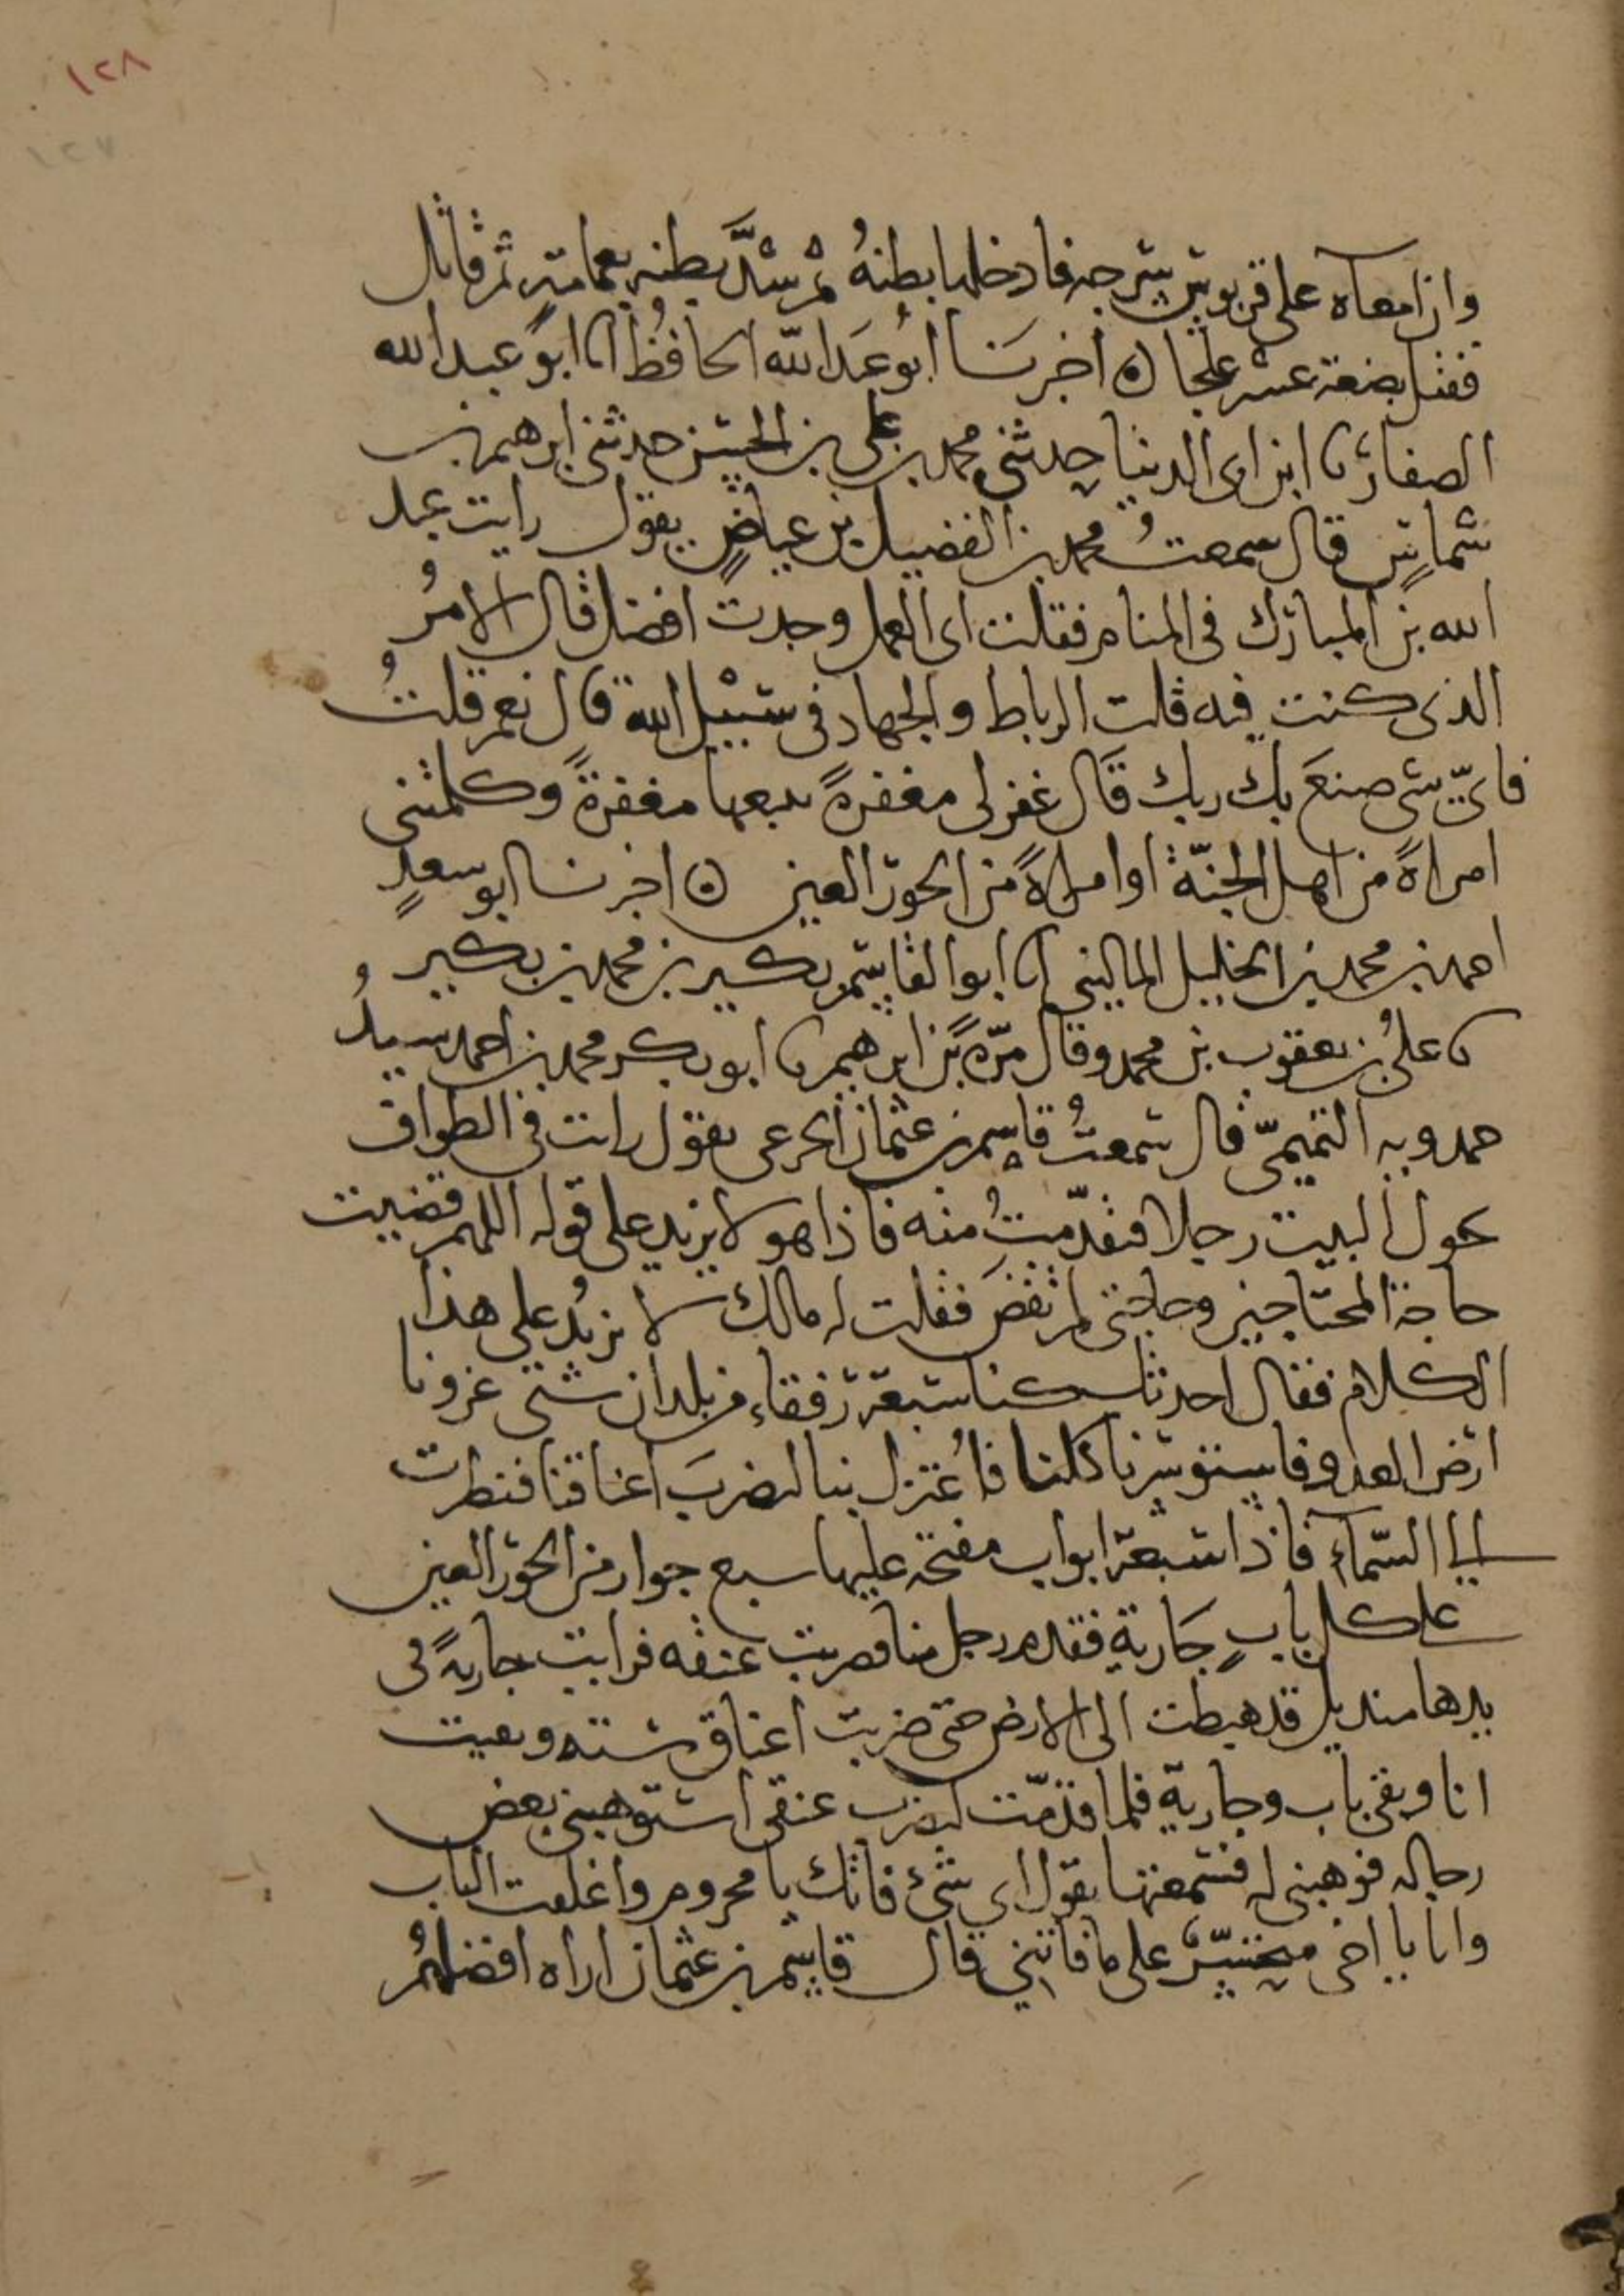 ١٢٨
١٢٧
وان امعاه على قربوس سرجه فادخلها بطنهُ ثم شدَّ بطنه بعمامته ثم قاتل
فقتل بضعة عشر علجا ٥ اخبرَنا ابُو عَبد الله الحافظُ انا ابو عبد الله
الصفار نا ابن ابى الدنيا حدثنى محمد بن على بن الحسين حدثنى ابرهيم بن
شماسٍ قال سمعتُ محمد بن الفضيل بن عياضٍ يقول رايت عبد
الله بن المبارك فى المنام فقلت اى العمل وجدت افضل قال الامرُ
الذى كنت فيه قلت الرباط والجهاد فى سبيْل الله قال نعم قلتُ
فاىّ شى صنعَ بك ربك قَال غفر لى مغفرةً بعدها مغفرةً وكلمتنى
امراةً من اهل الجنّة او امراةً من الحور العين ٥ اخبرنا ابو سعدٍ
احمد بن محمد بن الخليل المالينى انا ابو القاسم بكير بن محمد بن بكير
نا علىُ بن يعقوب بن محمد وقال مرّةً بن ابرهيم نا ابو بكر محمد بن احمد سيدُ
حمدويه التميمىّ قال سمعتُ قاسم بن عثمان الجرعى يقول رايت فى الطواف
حول البيت رجلا فتقدّمتُ منه فاذا هو لا يزيد على قوله اللهم قضيت
حاجة المحتاجين وحاجتى لم تقضَ فقلت له مالك لا تزيدُ على هذا
الكلام فقال احدثك كنا سبعة رفقاء من بلدان شتى غزونا
ارض العدو فاستوسرنا كلنا فاُعتزل بنا لتضربَ اعناقنا فنظرت
الى السّماءِ فاذا سبعة ابواب مفتحه عليها سبع جوار من الحور العين
على كل بابٍ جَاريةٌ فقدم رجل منا فضربت عنقه فرايت جاريةً فى
يدها منديل قد هبطت الى الارض حتى ضربت اعناق سته وبقيت
انا وبقى باب وجارية فلما قدّمت لتضرب عنقى استوهبنى بعض
رجاله فوهبنى له فسمعتها تقول اى شئ فاتك يا محروم واغلقت الباب
وانا يا اخى متحسّرٌ على ما فاتنى قال قاسم بن عثمان اراه افضلهُم